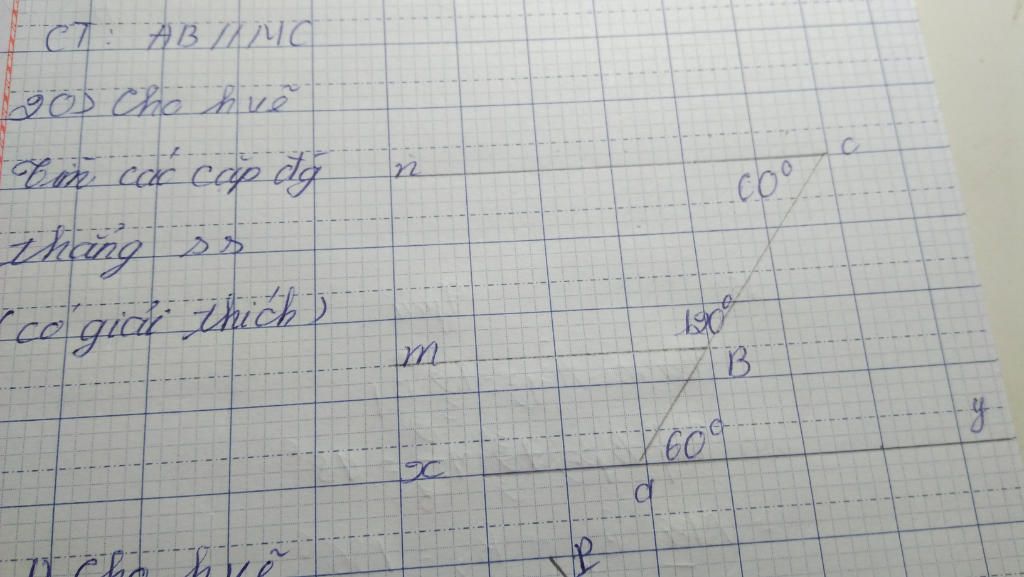 CT: AB // MC
20) Cho h vẽ
Tìm các cặp đg
thẳng ss
(có giải thích)
n
c
60°
120°
m
B
60°
y
x
d
1) Cho h vẽ
P